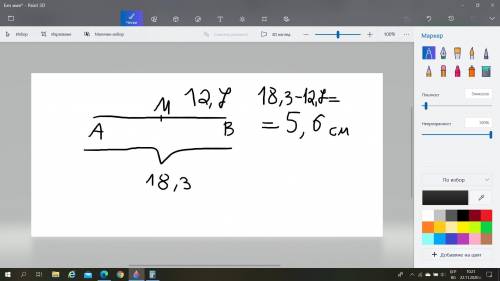 Без име* - Paint 3D
Четки
Избор
Изрязване
Магичен избор
3D изглед
100%
Маркер
Плътност
Непрозрачност
100%
По избор
+ Добавяне на цвят
M 12,7
A B
18,3
18,3-12,7=
=5,6 см
10:21
22.11.2020 г.